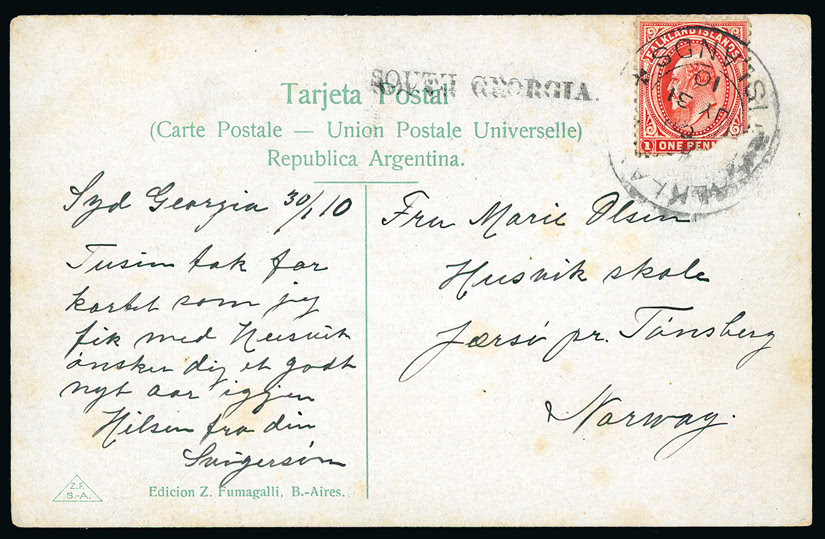 SOUTH GEORGIA.
Tarjeta Postal
(Carte Postale — Union Postale Universelle)
Republica Argentina.
FALKLAND ISLANDS
1 ONE PENN
Syd Georgia 30/1 10
Tusin tak for
kortet som jeg
fik med Husvik
ønsker dig et godt
nyt aar igjen
Hilsen fra din
Svigersøn
Fru Marie Olsen
Husvik skole
Jærsø pr. Tønsberg
Norway.
Z.F.
B.-A.
Edicion Z. Fumagalli, B.-Aires.